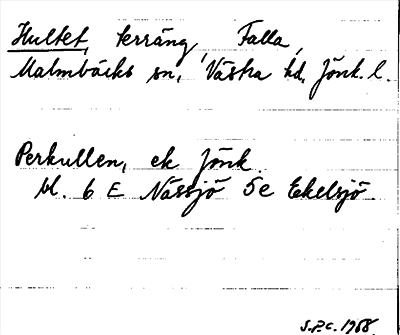 Hultet, terräng, Falla,
Malmbäcks sn, Västra hd. Jönk. l.
Perkullen, ek Jönk.
bl. 6 E Nässjö 5e Ekelsjö.
S.P.C. 1968.